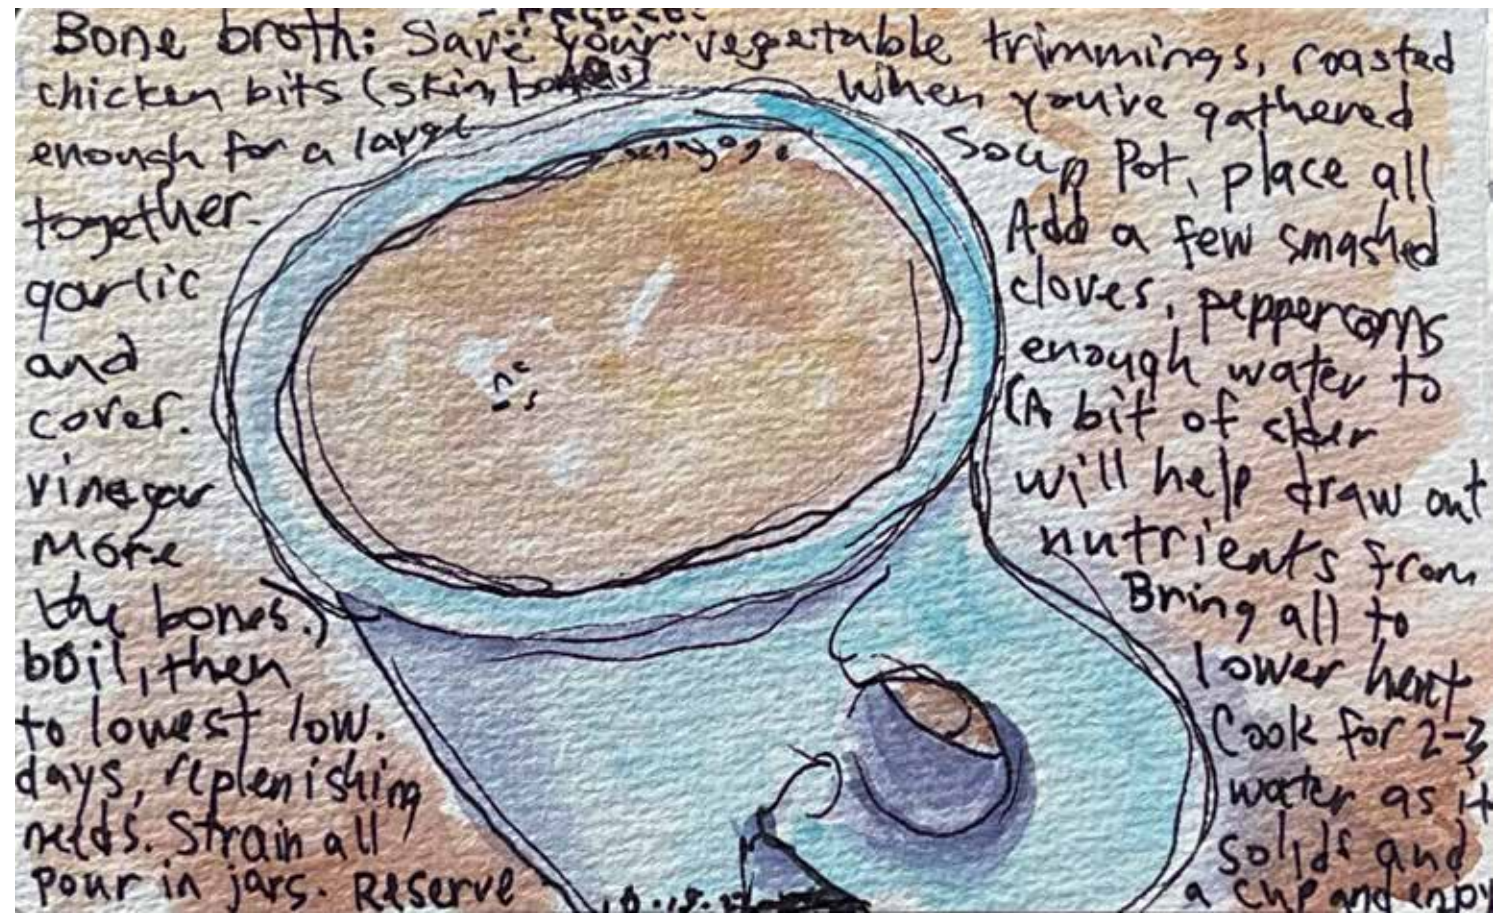 Bone broth: Save your vegetable trimmings, roasted
chicken bits (skin, bones) When you've gathered
enough for a large Soup Pot, place all
together. Add a few smashed
garlic cloves, peppercorns
and enough water to
cover. (A bit of cider
vinegar will help draw out
More nutrients from
the bones.) Bring all to
boil, then lower heat
to lowest low. Cook for 2-3
days, replenishing water as it
needs. Strain all solids and
Pour in jars. Reserve a cup and enjoy